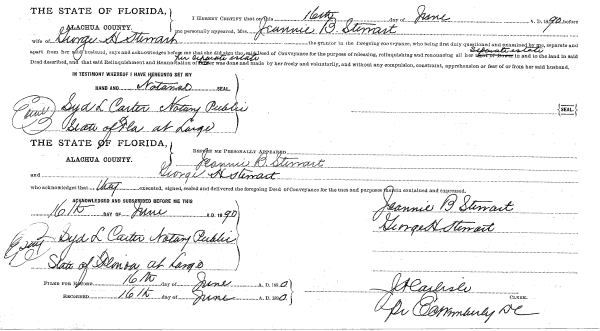 THE STATE OF FLORIDA,
ALACHUA COUNTY.
I HEREBY CERTIFY that on this 16th day of June A. D. 1890 before
me personally appeared, Mrs. Jeannie B Stewart
wife of George H Stewart the grantor in the foregoing conveyance, who being first duly questioned and examined by me, separate and
apart from her said husband, says and acknowledges before me that she did sign the said Deed of Conveyance for the purpose of releasing, relinquishing and renouncing all her separate estate in and to the land in said
Deed described, and that said Relinquishment and Renunciation of her separate estate was done and made by her freely and voluntarily, and without any compulsion, constraint, apprehension or fear of or from her said husband.
IN TESTIMONY WHEREOF I HAVE HEREUNTO SET MY
HAND AND Notarial SEAL.
Syd L Carter Notary Public
State of Fla at Large
SEAL
THE STATE OF FLORIDA,
ALACHUA COUNTY.
BEFORE ME PERSONALLY APPEARED
Jeannie B. Stewart
and George H Stewart
who acknowledged that they executed, signed, sealed and delivered the foregoing Deed of Conveyance for the uses and purposes therein contained and expressed.
ACKNOWLEDGED AND SUBSCRIBED BEFORE ME THIS
16th DAY OF June A. D. 1890
Jeannie B Stewart
George H Stewart
Syd L Carter Notary Public
State of Florida at Large
FILED FOR RECORD 16th day of June A. D. 1890
RECORDED 16th day of June A. D. 1890
J A Carlisle
CLERK.
DC